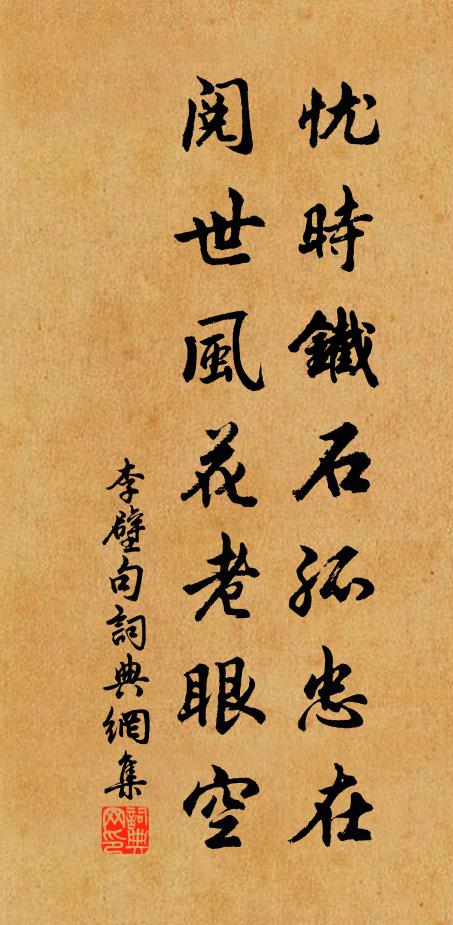 忧時鐵石孤忠在
閱世風花老眼空
李壁句詞典網集
詞典网印